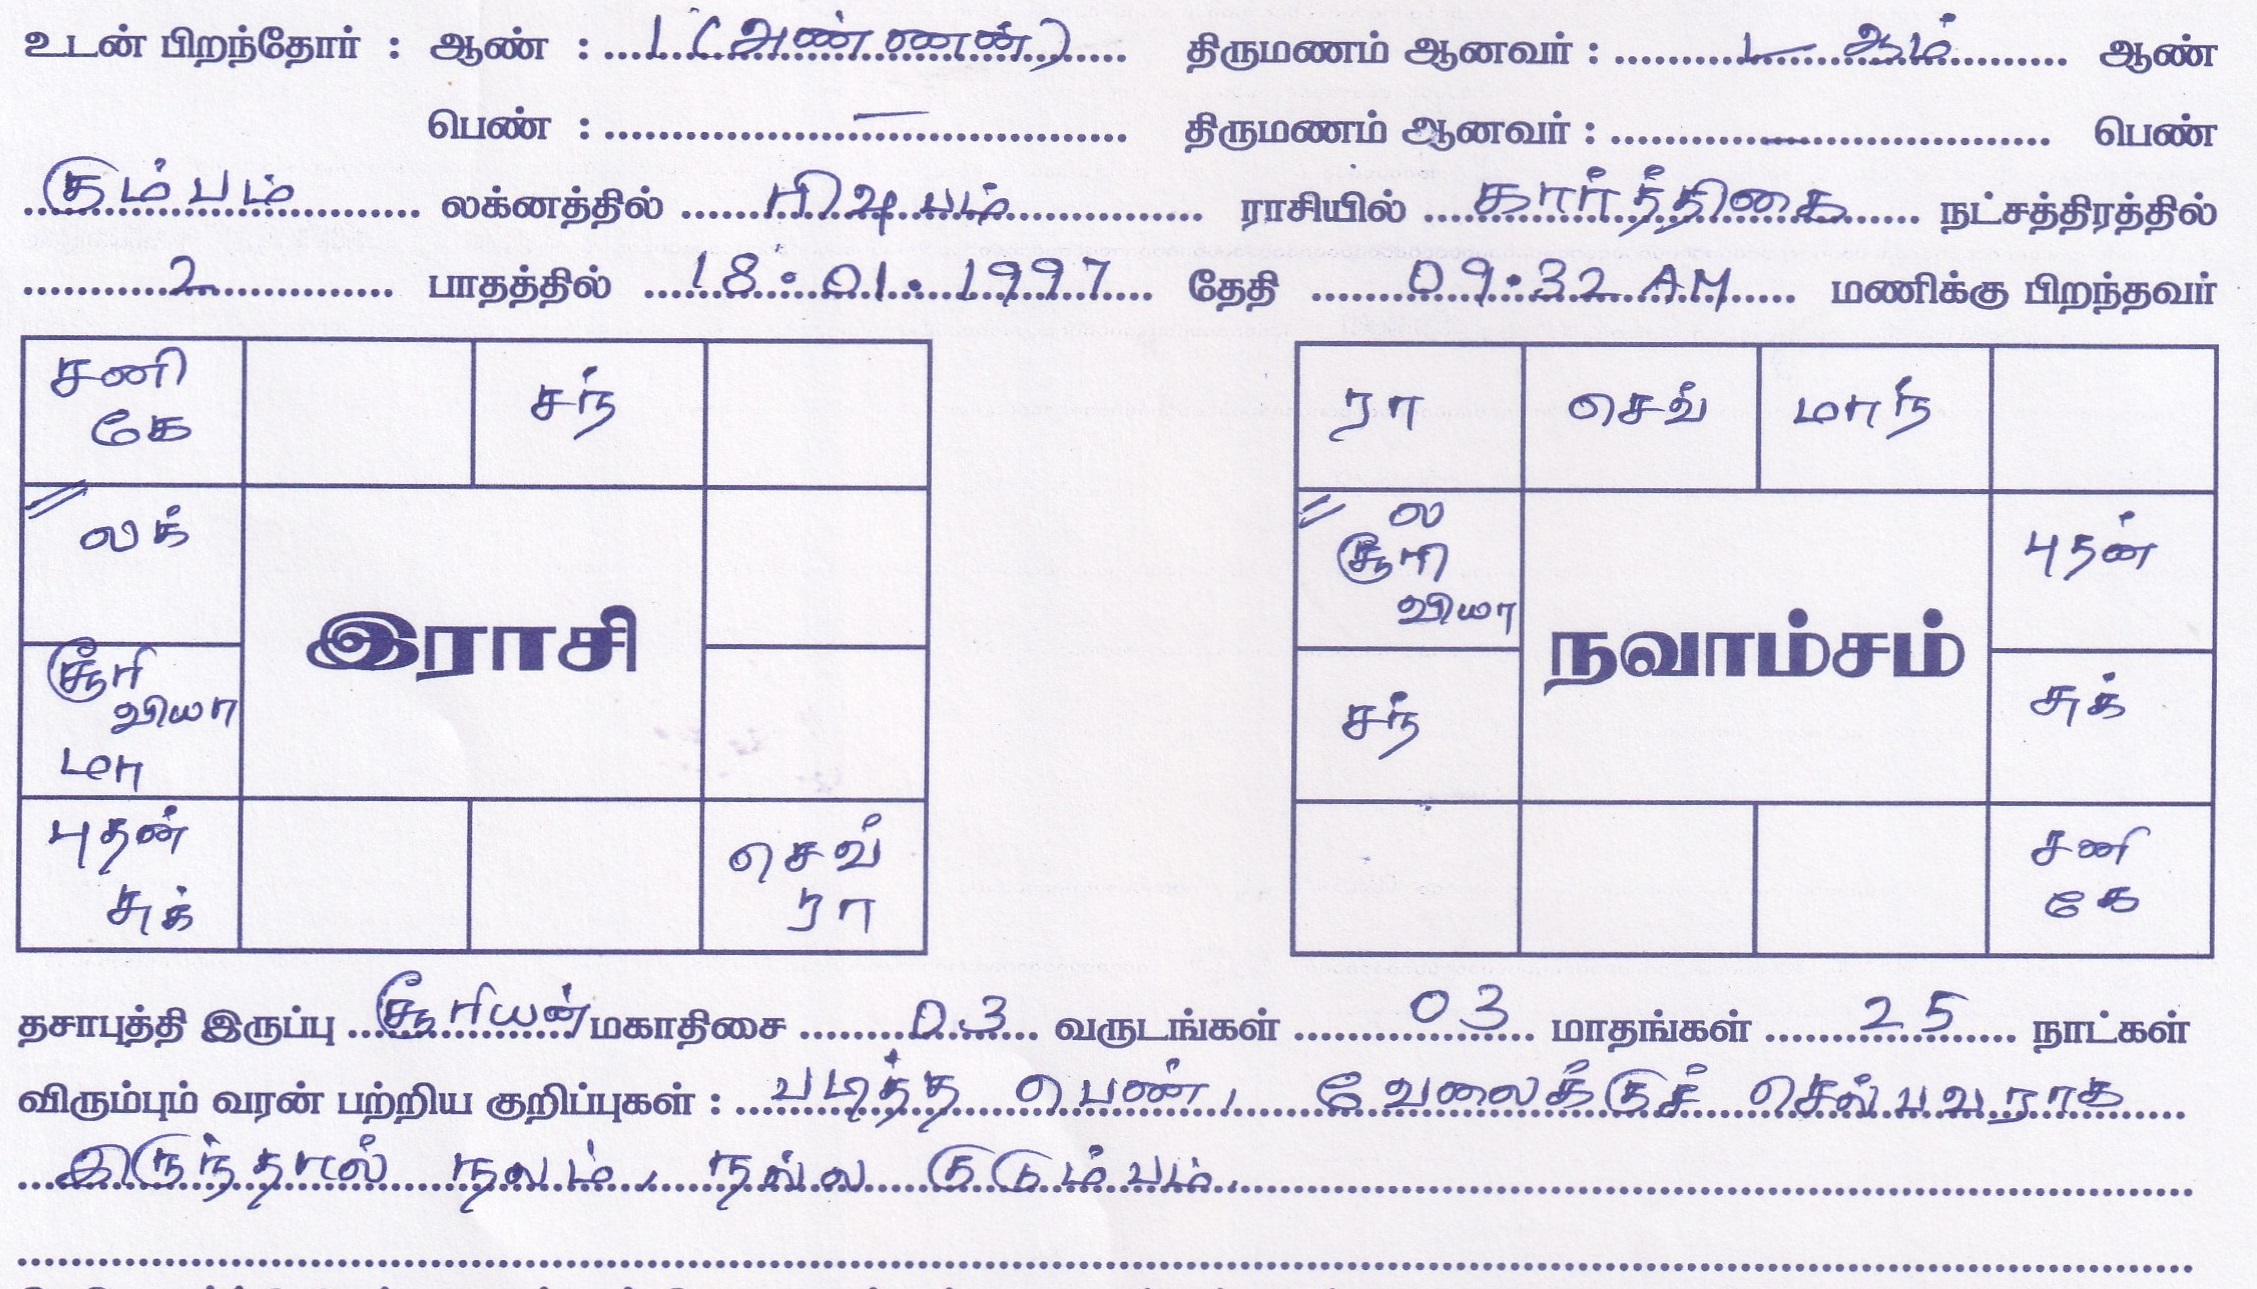 உடன் பிறந்தோர் : ஆண் : 1 (அண்ணன்) திருமணம் ஆனவர் : 1 - ஆம் ஆண்
பெண் : — திருமணம் ஆனவர் : — பெண்
கும்பம் லக்னத்தில் ரிஷபம் ராசியில் கார்த்திகை நட்சத்திரத்தில்
2 பாதத்தில் 18.01.1997 தேதி 09:32 AM மணிக்கு பிறந்தவர்
சனி கே சந்
லக்
சூரி வியா மா
இராசி
புதன் சுக் செவ் ரா
ரா செவ் மாந்
ல சூரி வியா புதன்
நவாம்சம்
சந் சுக்
சனி கே
தசாபுத்தி இருப்பு சூரியன் மகாதிசை 03 வருடங்கள் 03 மாதங்கள் 25 நாட்கள்
விரும்பும் வரன் பற்றிய குறிப்புகள் : படித்த பெண், வேலைக்குச் செல்பவராக
இருந்தால் நலம், நல்ல குடும்பம்.